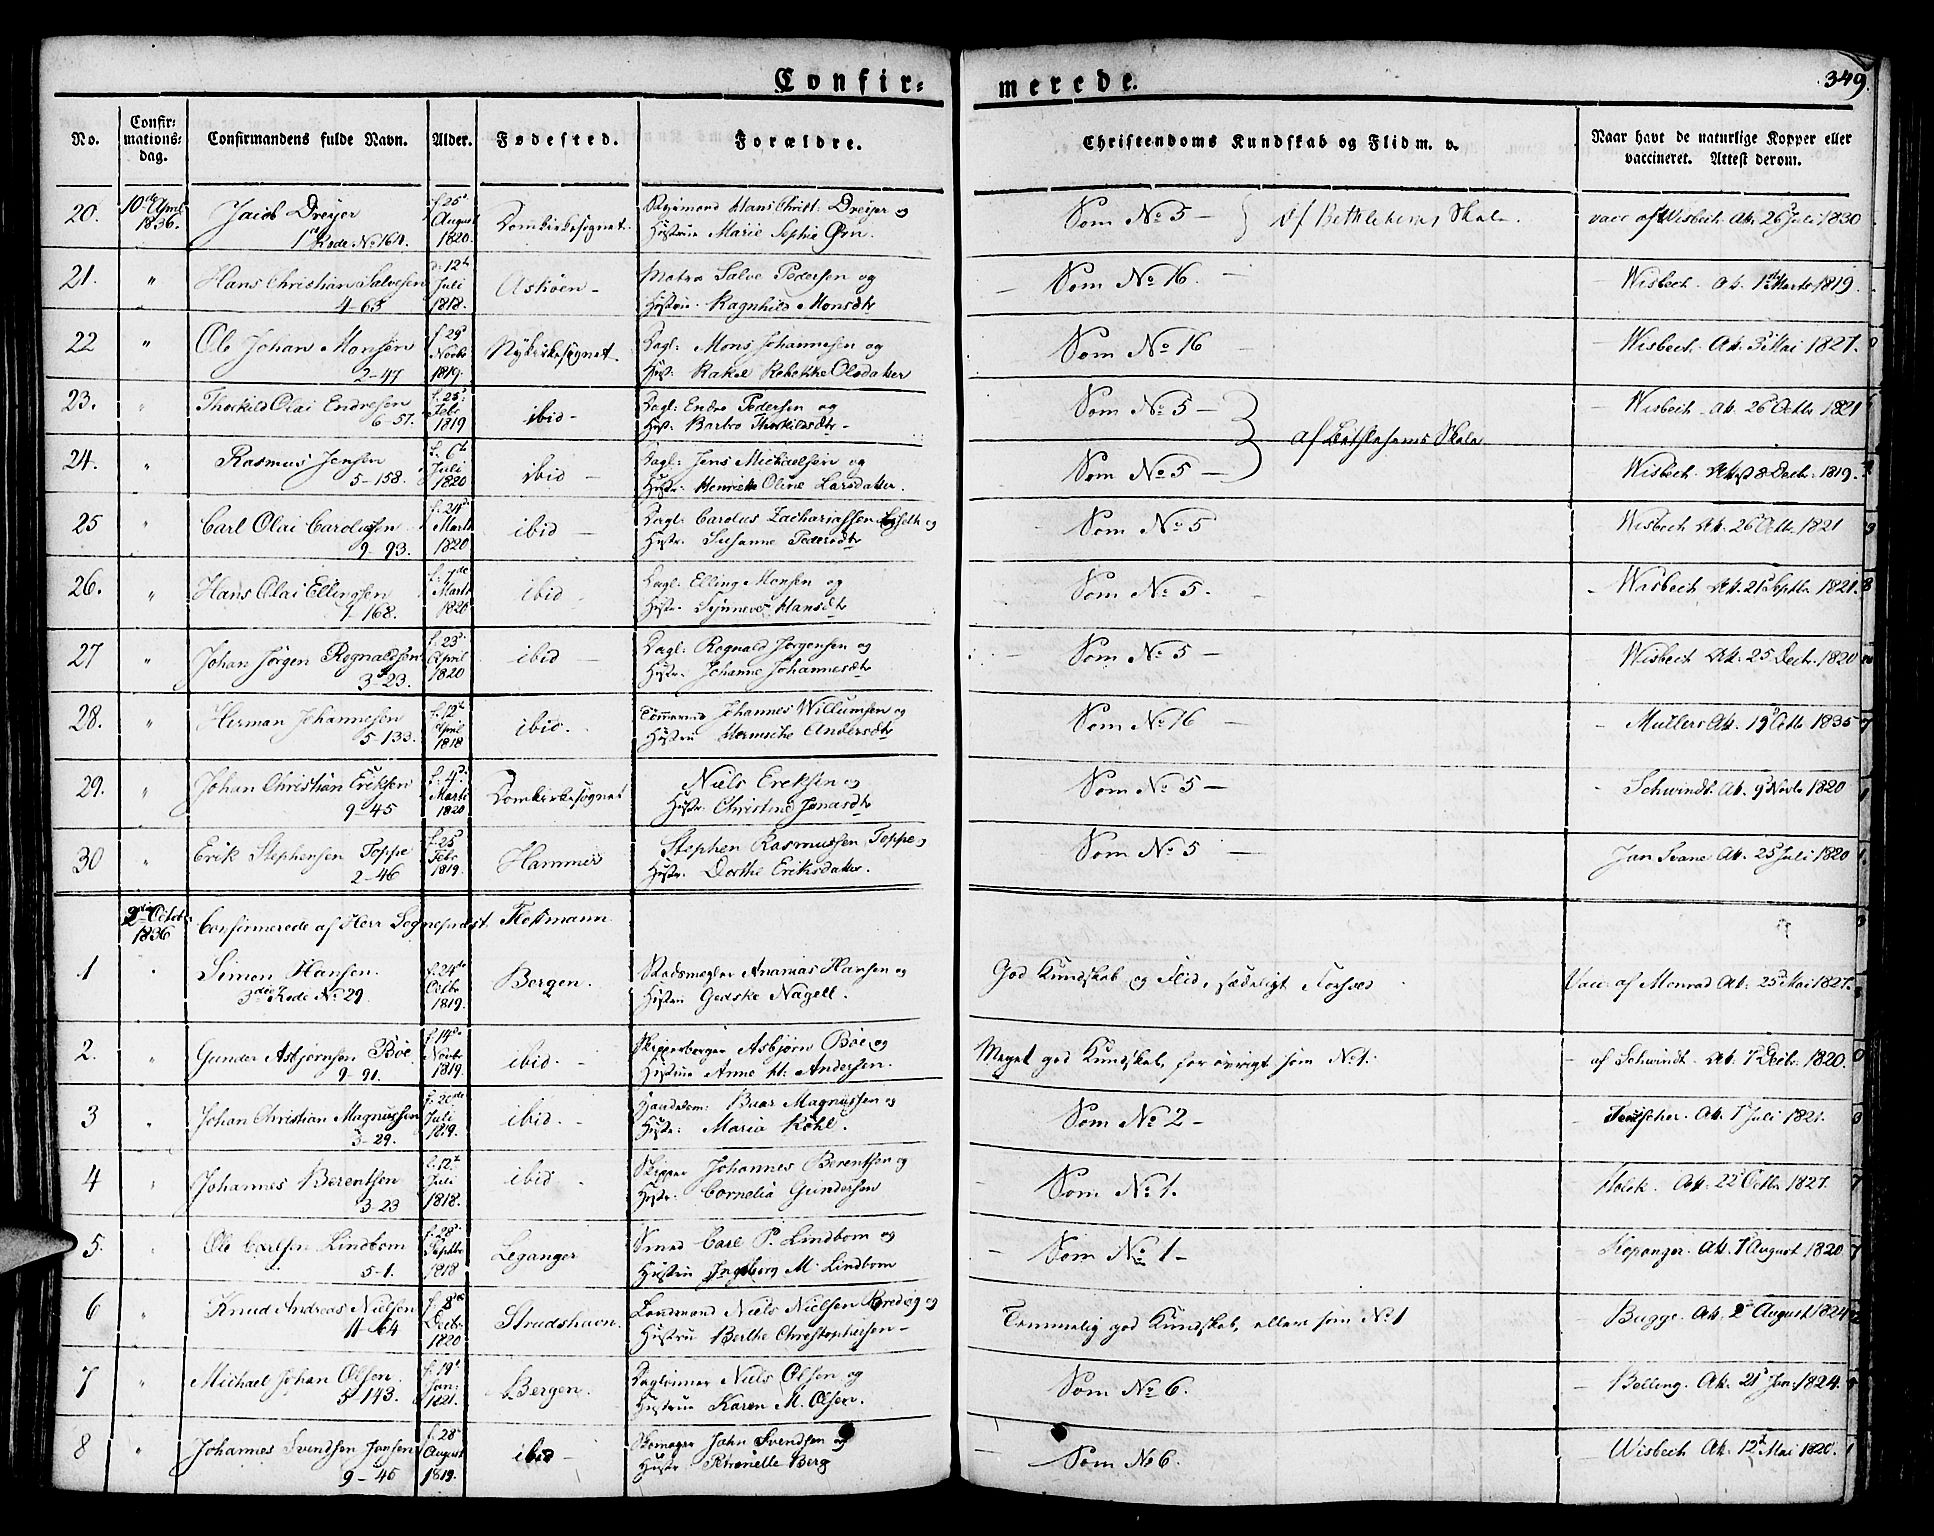 Confir=
merede.
349.
No.
Confir=
mations=
dag.
Confirmandens fulde Navn.
Alder.
Fødested.
Forældre.
Christendoms Kundskab og Flid m. v.
Naar havt de naturlige Kopper eller
vaccineret. Attest derom.
20. 10de April 1836. Jacob Dreyer f. 25d August 1820. Domkirkesognet. Hans Christ: Dreyer og
Hustrue Marie Sophie Ørn
Som No 5 — af Bethlehems Skole.
vacc af Wisbech. Att. 26 Juli 1830
21. " Hans Christian Salvesen 4-65 d: 12te Juli 1818. Askøen — Matro Salve Pedersen og
Hustrue Ragnhild Monsdtr
Som No 16. —
Wisbech. Att. 1ste Marts 1819.
22 " Ole Johan Monsen 2-47 f. 29d Novbr 1819. Nykirkesognet. Dagl: Mons Johannesen og
Hust: Rakel Rebekke Olsdatter
Som No 16 —
Wisbech. Att. 3 Mai 1827.
23. " Thorkild Olai Endresen 6-57. f. 25d Febr 1819 ibid — Dagl: Endre Pedersen og
Hust: Barbro Thorkildsdtr —
Som No 5 —
Wisbech. Att. 26 Octbr 1821
af Bethlehems Skole
24. " Rasmus Jensen 5-158. f. 6te Juli 1820 ibid — Dagl: Jens Michaelsen og
Hustr: Henrikke Oline Larsdatter.
Som No 5 —
Wisbech. Attest 8 Decbr. 1819.
25 " Carl Olai Carolusen 9-93. f. 24d Marts 1820 ibid — Dagl: Carolus Zachariassen og
Hustr. Susanne Pedersdtr
Som No 5
Wisbech Att. 26 Octb 1821
26. " Hans Olai Ellingsen 7-168. Marts 1820 ibid — Dagl: Elling Monsen og
Hustr. Synneve Hansdtr
Som No 5.
Wisbech Att. 21 Septbr 1821.
27 " Johan Jörgen Rognaldsen 3-23. f. 23d April 1820 ibid — Dagl: Rognald Jørgensen og
Hustr. Johanne Johannesdtr
Som No 5 —
Wisbech Att. 25 Decbr. 1820
28. " Herman Johannesen 5-133. f. 12te April 1818 ibid. Tömmermd Johannes Willumsen og
Hustrue Andersdtr
Som No 16 —
Müllers Att. 19 Octb 1835
29. " Johan Christian Eriksen 9-45 f. 4d Marts 1820 Domkirkesognet Niels Ereksen og
Hustr. Christine Jonasdtr
Som No 5 —
Schwindt. Att. 9 Novbr 1820
30 " Erik Stephensen Toppe 2-46 f. 25d Febr 1819. Hammer Stephen Rasmussen Toppe og
Hustr. Dorthe Eriksdatter.
Som No 5 —
Jan Svane Att. 25 Juli 1820
2den Octobr 1836 Confirmerede af Herr Sognepræst Flottmann
1 " Simon Hansen. 3die Rode No 29. f. 24de Octbr 1819. Bergen. Stadsmegler Ananias Hansen og
Hustrue Gedske Nagell.
God Kundskab og Flid, sædeligt Forhold
Vacc. af Monrad Att: 25 Mai 1827.
2. " Gunder Asbjørnsen Böe 9-91. f. 14d Novbr 1819. ibid. Skipperborger Asbjörn Böe og
Hustrue Anne M: Andersen.
Meget god Kundskab, for övrigt som No 1.
af Schwindt. Att. 7 Decbr. 1820.
3 " Johan Christian Magnussen 3-29. f. 20de Juli 1819. ibid. Magnussen og
Hustr: Maria Köhl.
Som No 2 —
Att. 1 Juli 1821.
4 " Johannes Berentsen 3-23 f. 12te Juli 1818. ibid. Skipper Johannes Berentsen og
Hustr. Cornelia Gundersen
Som No 1.
Holck. Att. 22 Octbr 1827.
5. " Ole Carlsen Lindbom 5-1. f. 29d Septbr 1818 Leganger Smed Carl P. Lindbom og
Hustrue Ingeborg M. Lindbom
Som No 1 —
Kopanger. Att. 7 August 1820
6 " Knud Andreas Nielsen 11-64 f. 8de Decbr 1820 Strudshavn. Niels Nielsen Bredvig og
Hustrue Berthe Christophersen —
Temmelig god Kundskab, ellers som No 1
Bugge. Att. 2 August 1824
7 " Michael Johan Olsen. 5-143. f. 19d Jan: 1821. Bergen. Dagleimer Niels Olsen og
Hustrue Karen M. Olsen.
Som No 6.
Belling. Att. 21 Jan: 1824.
8 " Johannes Svendsen Jansen 9-45 f. 28d August 1819. ibid — Skomager John Svendsen og
Hustr Petronelle Berg
Som No 6.
Wisbech Att. 12 Mai 1820.